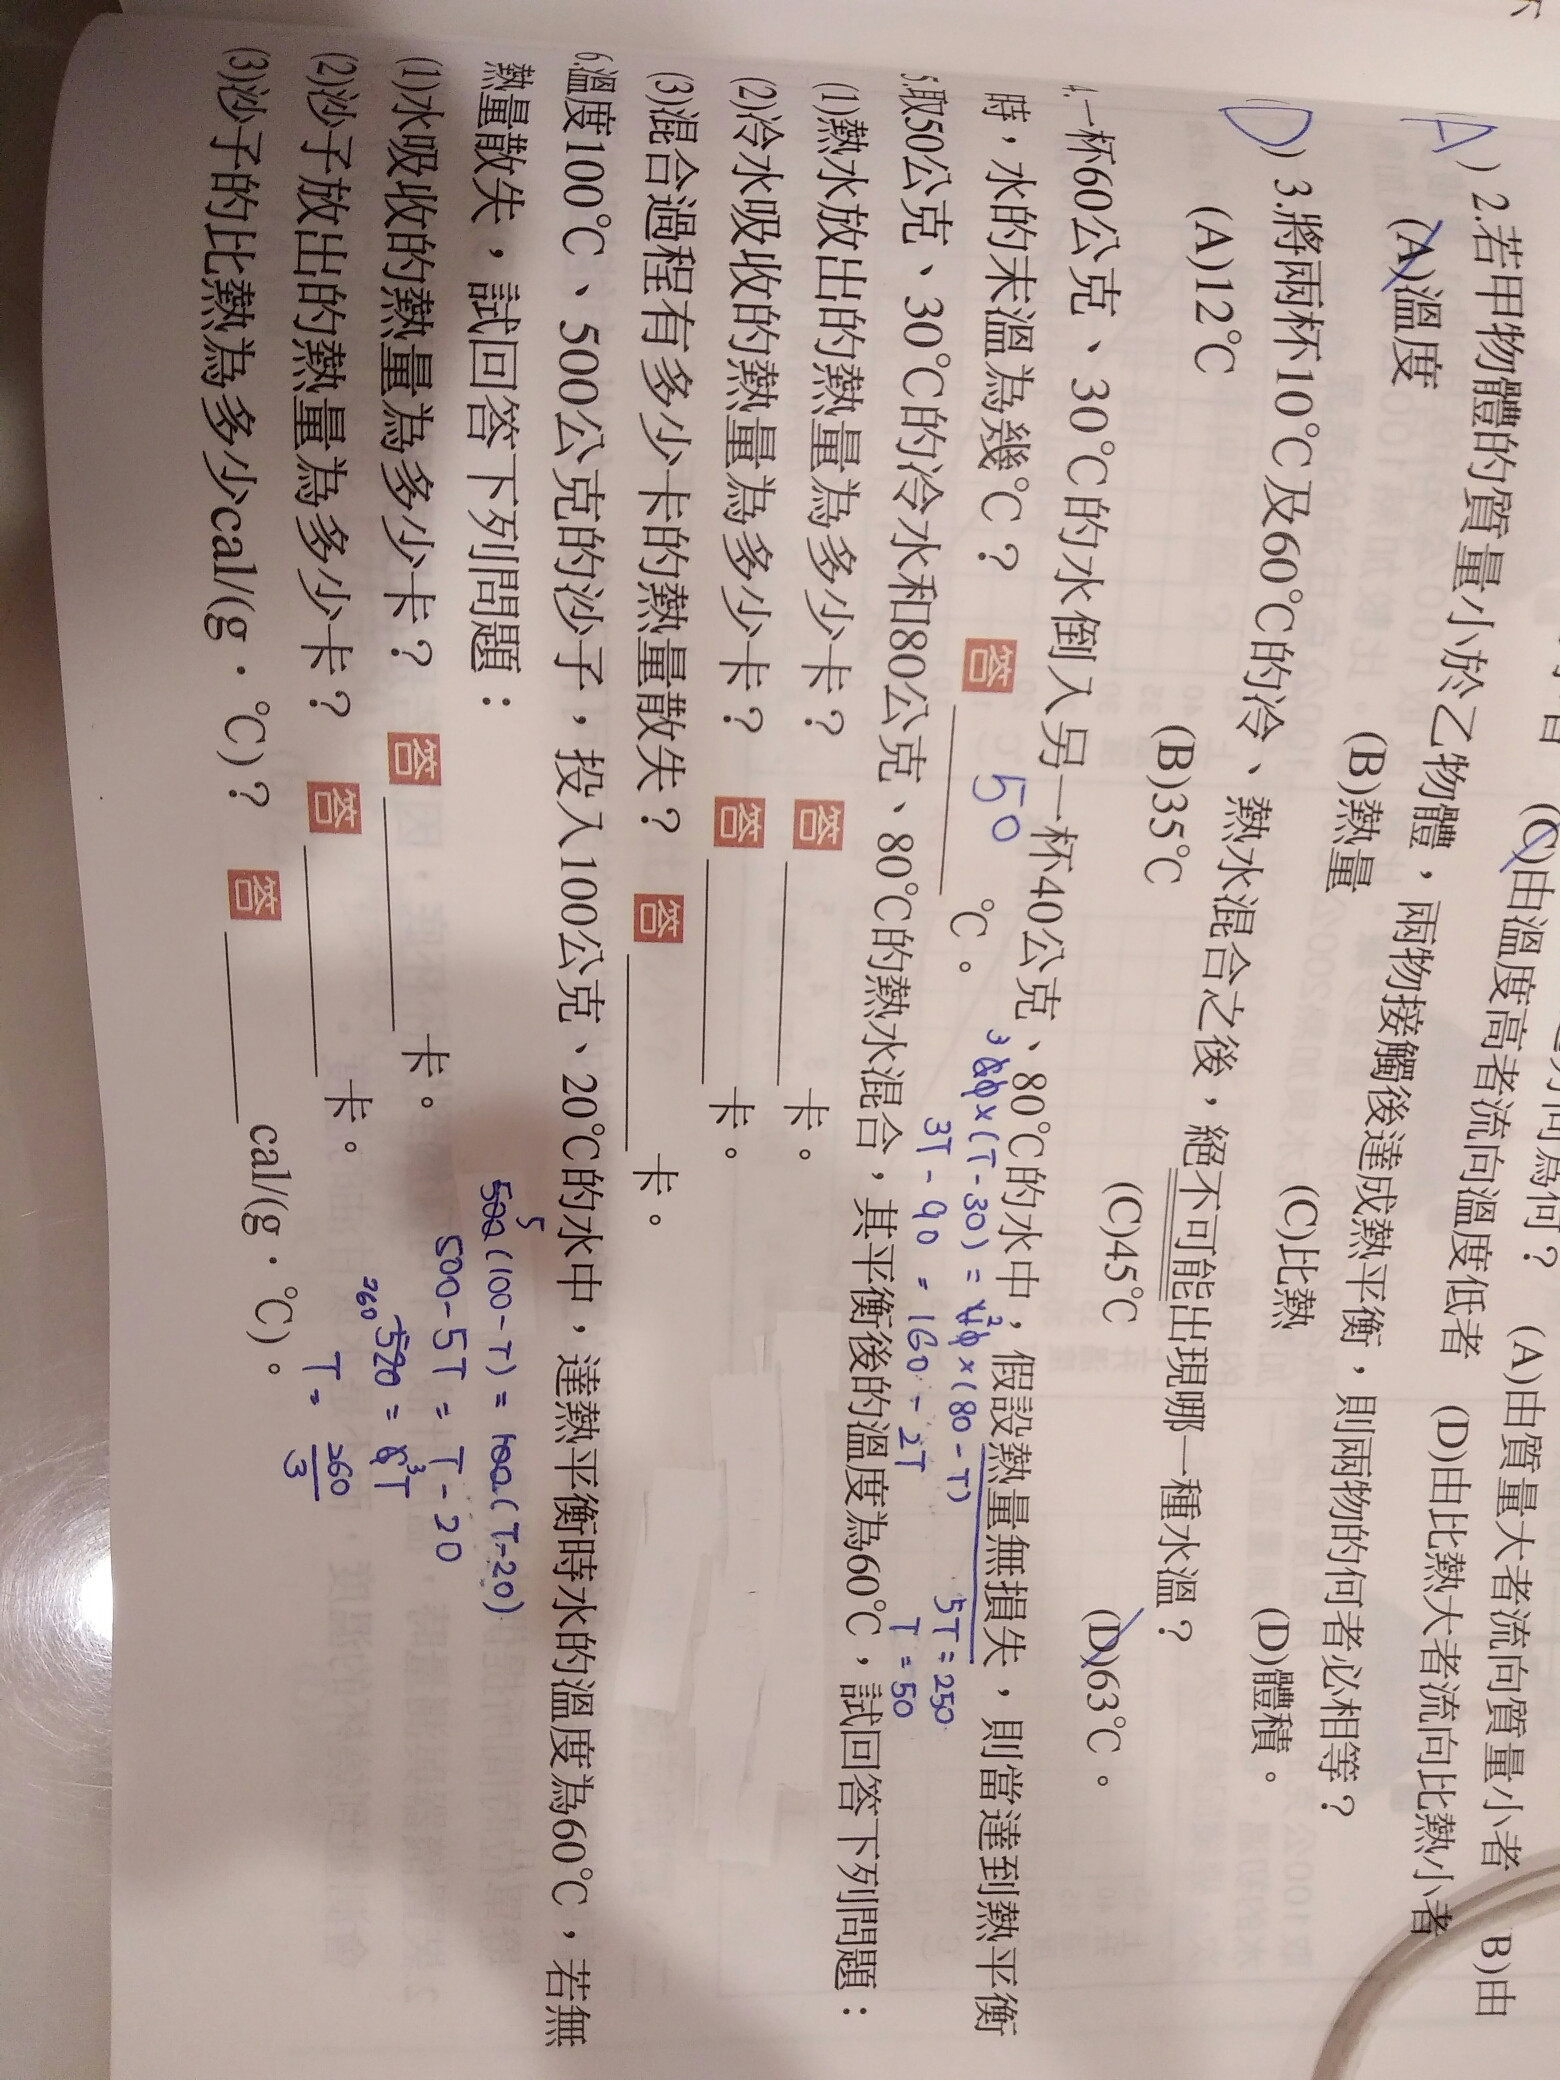 (C)由溫度高者流向溫度低者
(A)由質量大者流向質量小者
(B)由
(D)由比熱大者流向比熱小者
A ) 2.若甲物體的質量小於乙物體，兩物接觸後達成熱平衡，則兩物的何者必相等？
(A)溫度 (B)熱量 (C)比熱 (D)體積。
D ) 3.將兩杯10℃及60℃的冷、熱水混合之後，絕不可能出現哪一種水溫？
(A)12℃ (B)35℃ (C)45℃ (D)63℃。
4.一杯60公克、30℃的水倒入另一杯40公克、80℃的水中，假設熱量無損失，則當達到熱平衡
時，水的末溫為幾℃？ 答 50 ℃。
3 60×(T-30) = 2 40×(80-T)
3T-90 = 160-2T
5T=250
T=50
5.取50公克、30℃的冷水和80公克、80℃的熱水混合，其平衡後的溫度為60℃，試回答下列問題：
(1)熱水放出的熱量為多少卡？ 答 卡。
(2)冷水吸收的熱量為多少卡？ 答 卡。
(3)混合過程有多少卡的熱量散失？ 答 卡。
6.溫度100℃、500公克的沙子，投入100公克、20℃的水中，達熱平衡時水的溫度為60℃，若無
熱量散失，試回答下列問題：
(1)水吸收的熱量為多少卡？ 答 卡。
(2)沙子放出的熱量為多少卡？ 答 卡。
(3)沙子的比熱為多少cal/(g·℃)？ 答 cal/(g·℃)。
5 500(100-T) = 100(T-20)
500-5T = T-20
260 520 = 6 3T
T= 260/3